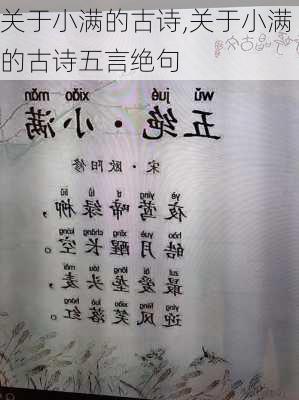 关于小满的古诗,关于小满
的古诗五言绝句
wǔ jué xiǎo mǎn
五绝·小满
宋·欧阳修
yè yīng tí lǜ liǔ
夜莺啼绿柳，
hào yuè xǐng cháng kōng
皓月醒长空。
zuì ài lǒng tóu mài
最爱垄头麦，
yíng fēng xiào luò hóng
迎风笑落红。